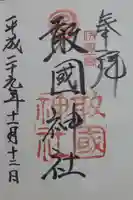 奉拝
敢國神社
敢國
神社
平成二十九年十一月十二日